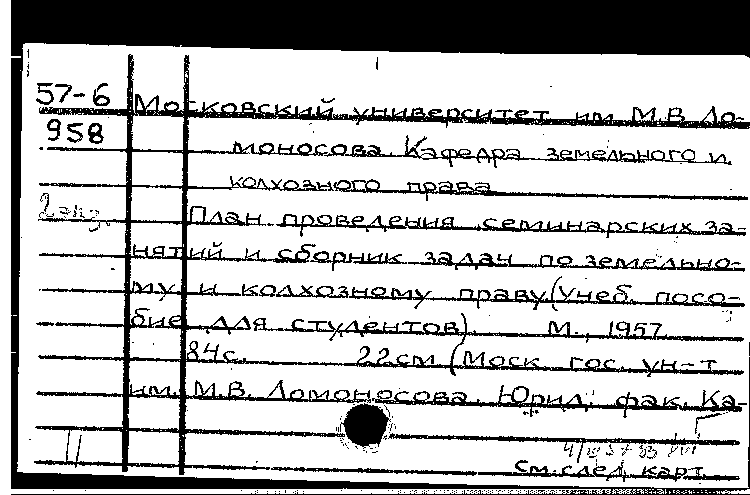 57-6 Московский университет им. М.В. Ло-
958 моносова. Кафедра земельного и
колхозного права
2 экз. План проведения семинарских за-
нятий и сборник задач по земельно-
му и колхозному праву. (Учеб. посо-
бие для студентов). М., 1957.
84с. 22см (Моск. гос. ун-т
им. М.В. Ломоносова. Юрид. фак. Ка-
См. след. карт.